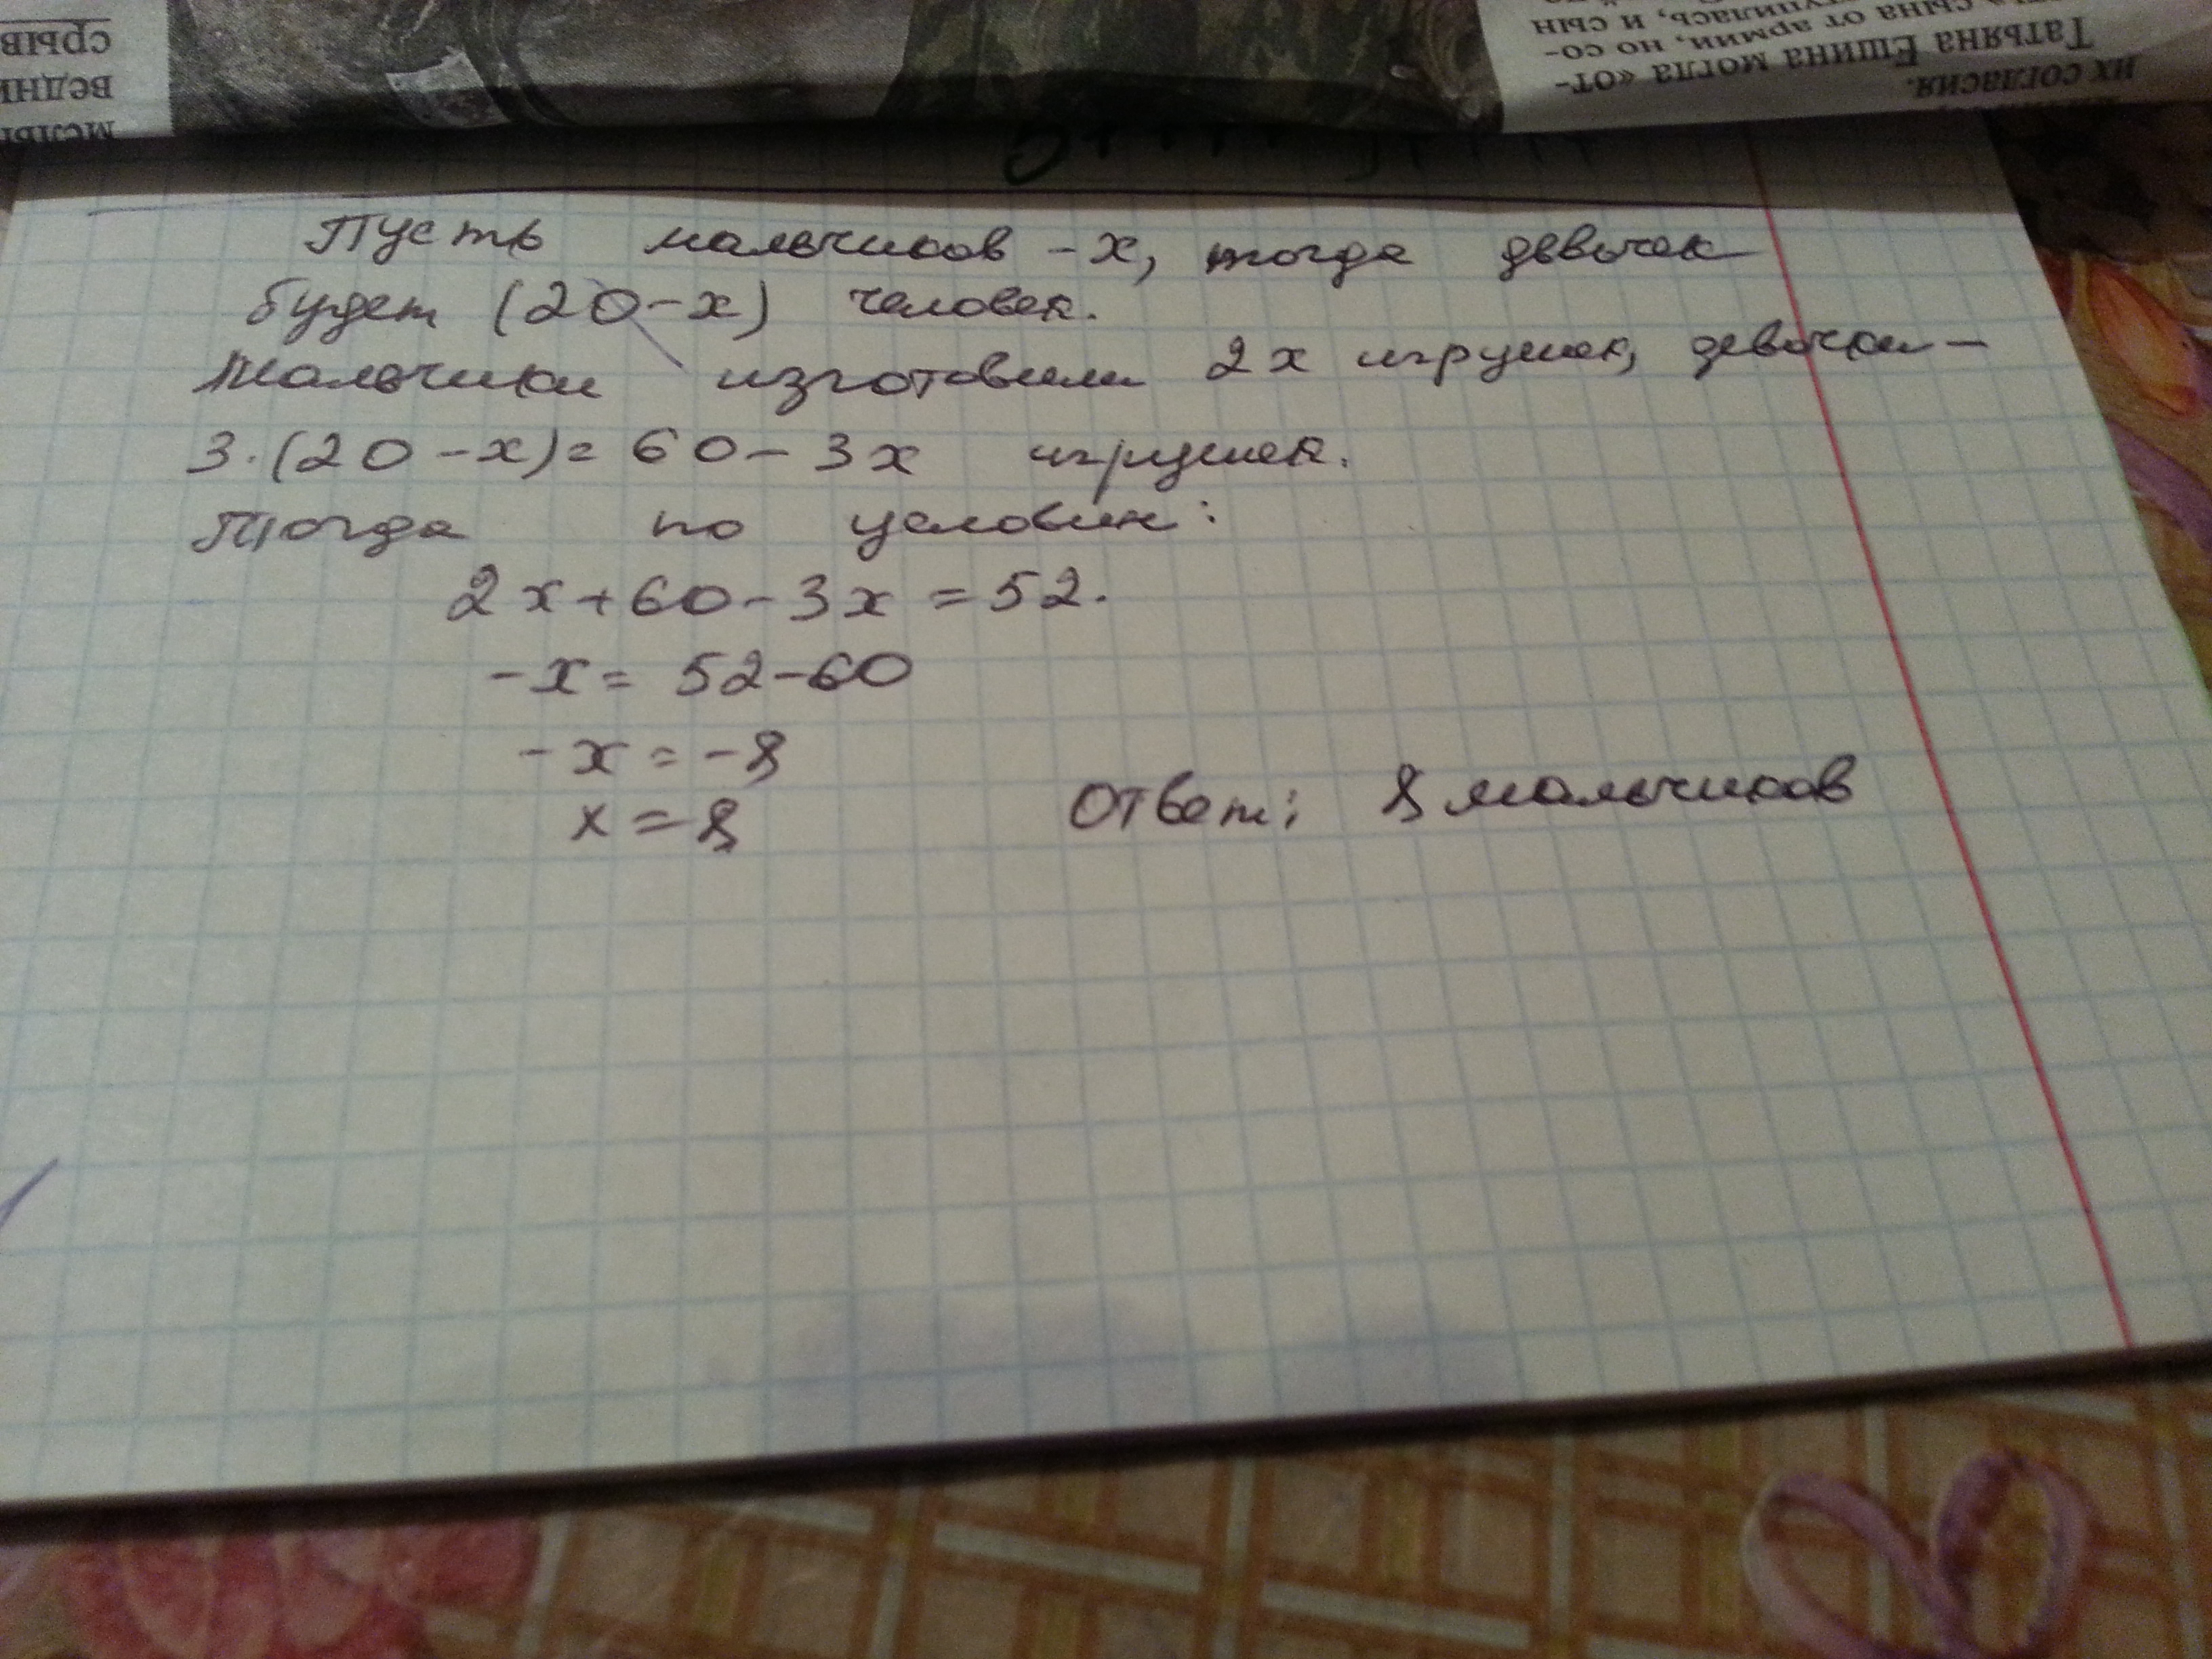 срыв
ведни
мелы
их согласия.
Татьяна Ешина могла «от-
сына от армии, но со-
и сын
Пусть мальчиков - х, тогда девочек
будет (20-х) человек.
Мальчики изготовили 2х игрушек, девочки -
3·(20-х)= 60-3х игрушек.
Тогда по условию:
2х+60-3х=52.
-х= 52-60
-х=-8
х=8
Ответ: 8 мальчиков